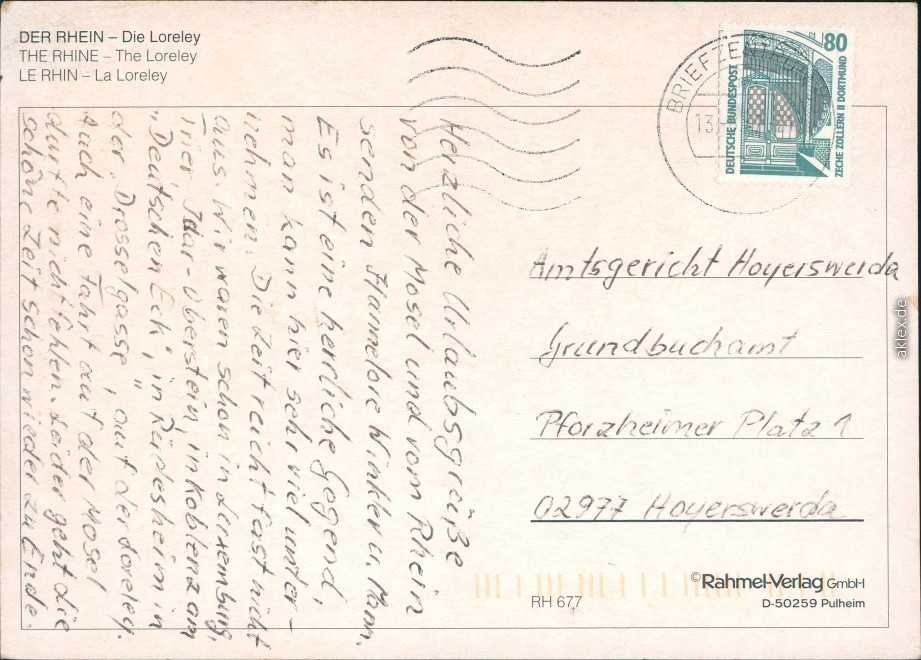 DER RHEIN – Die Loreley
THE RHINE – The Loreley
LE RHIN – La Loreley
BRIEFZENTR
13.
80
DEUTSCHE BUNDESPOST
ZECHE ZOLLERN II DORTMUND
Herzliche Urlaubsgrüße
von der Mosel und vom Rhein
senden Hannelore Winkler u. Mann.
Es ist eine herrliche Gegend,
man kann hier sehr viel unter-
nehmen. Die Zeit reicht fast nicht
aus. Wir waren schon in Luxemburg,
Trier, Idar-Oberstein, in Koblenz am
„Deutschen Eck", in Rüdesheim in
der „Drosselgasse", auf der Loreley.
Auch eine Fahrt auf der Mosel
durfte nicht fehlen. Leider geht die
schöne Zeit schon wieder zu Ende.
Amtsgericht Hoyerswerda
Grundbuchamt
Pforzheimer Platz 1
02977 Hoyerswerda
©Rahmel-Verlag GmbH
D-50259 Pulheim
RH 677
aklex.de